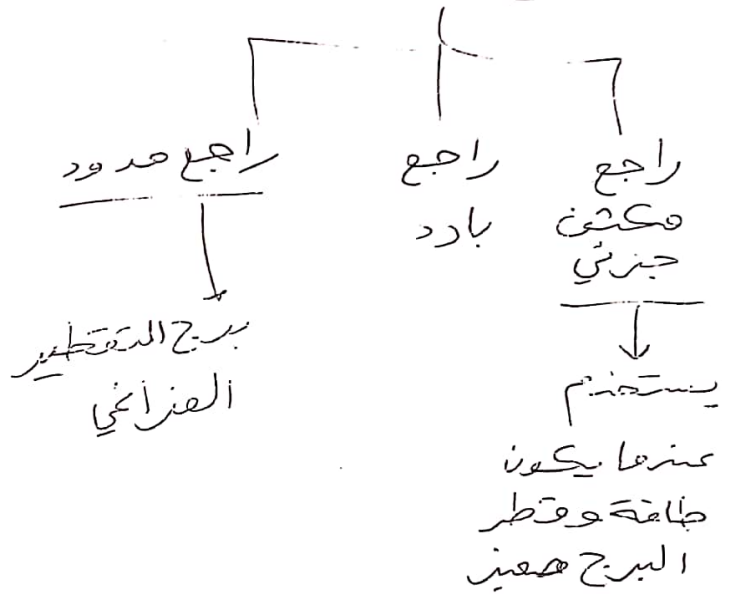 راجع
مكثف
جزئي
يستخدم
عندما يكون
طاقة وقطر
البرج صغير
راجع
بارد
راجع مدود
برج التقطير
الفراغي